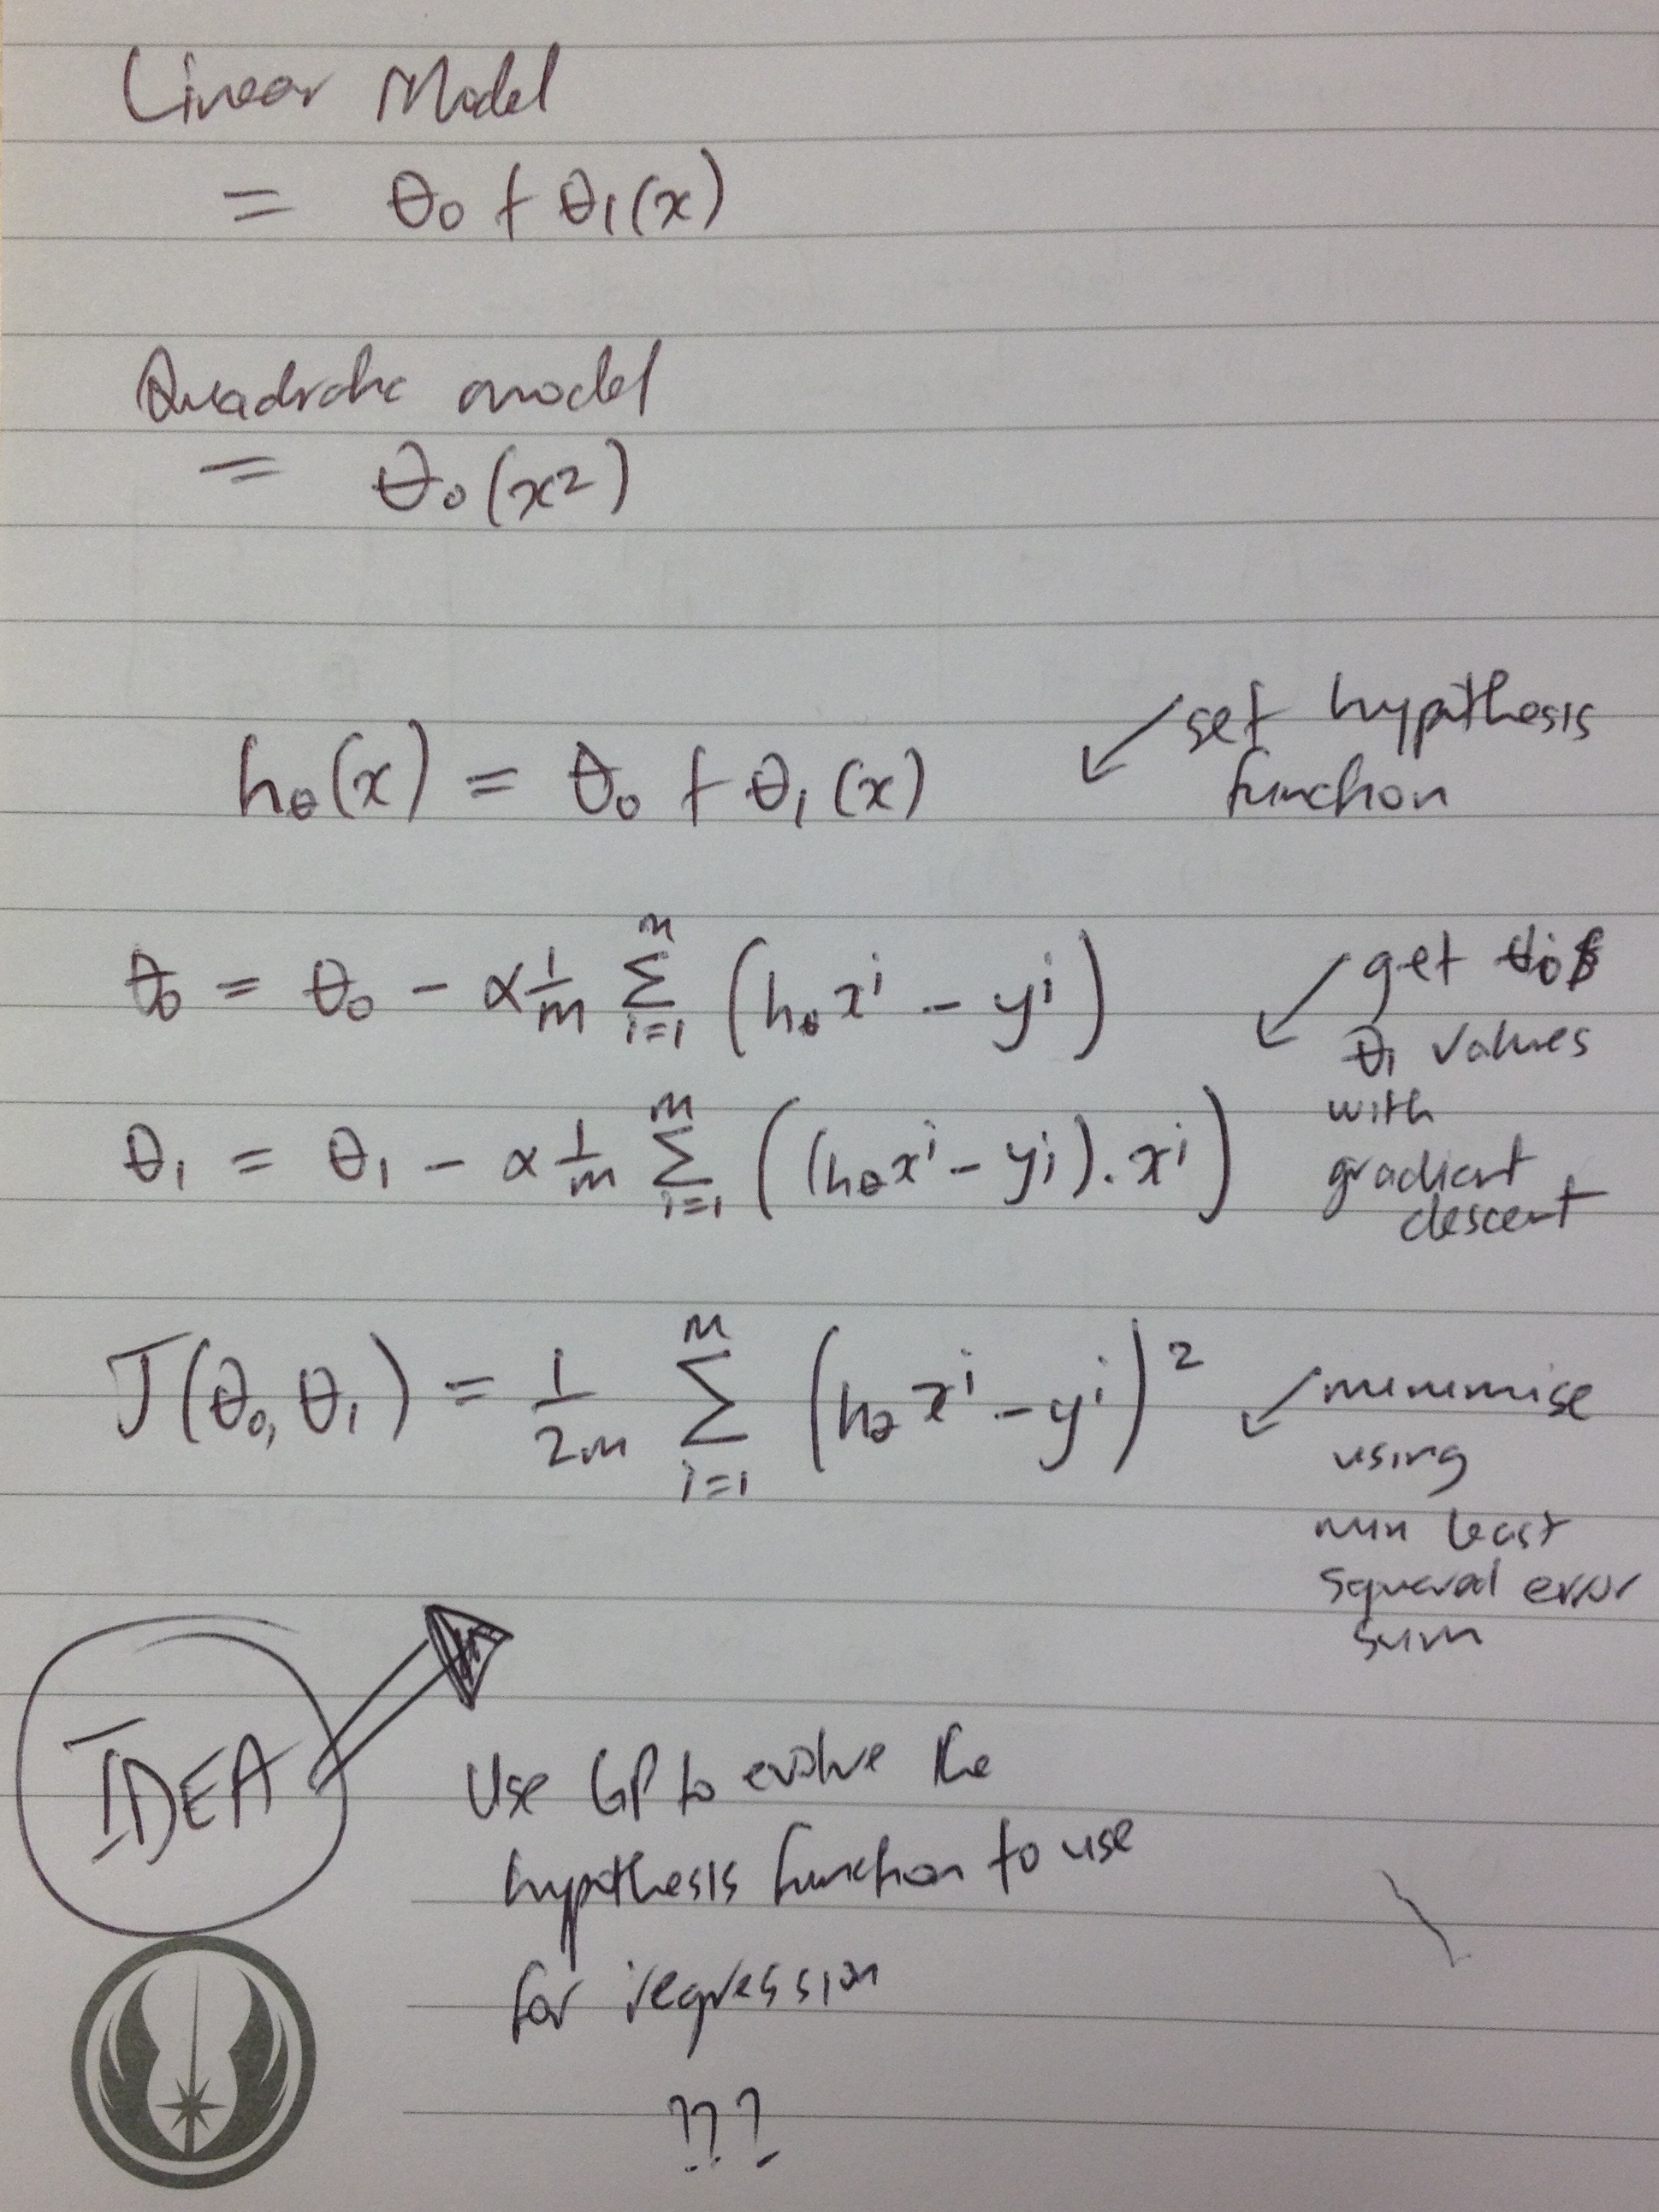 Linear Model
= θ₀ + θ₁(x)
Quadratic model
= θ₀(x²)
hθ(x) = θ₀ + θ₁(x)
set hypothesis
function
θ₀ = θ₀ - α 1/m Σ_{i=1}^{m} (hθ xⁱ - yⁱ)
get θ₀ &
θ₁ values
with
gradient
descent
θ₁ = θ₁ - α 1/m Σ_{i=1}^{m} ((hθ xⁱ - yⁱ) . xⁱ)
J(θ₀, θ₁) = 1/2m Σ_{i=1}^{m} (hθ xⁱ - yⁱ)²
minimise
using
min least
squared error
sum
IDEA
Use GP to evolve the
hypothesis function to use
for regression
???